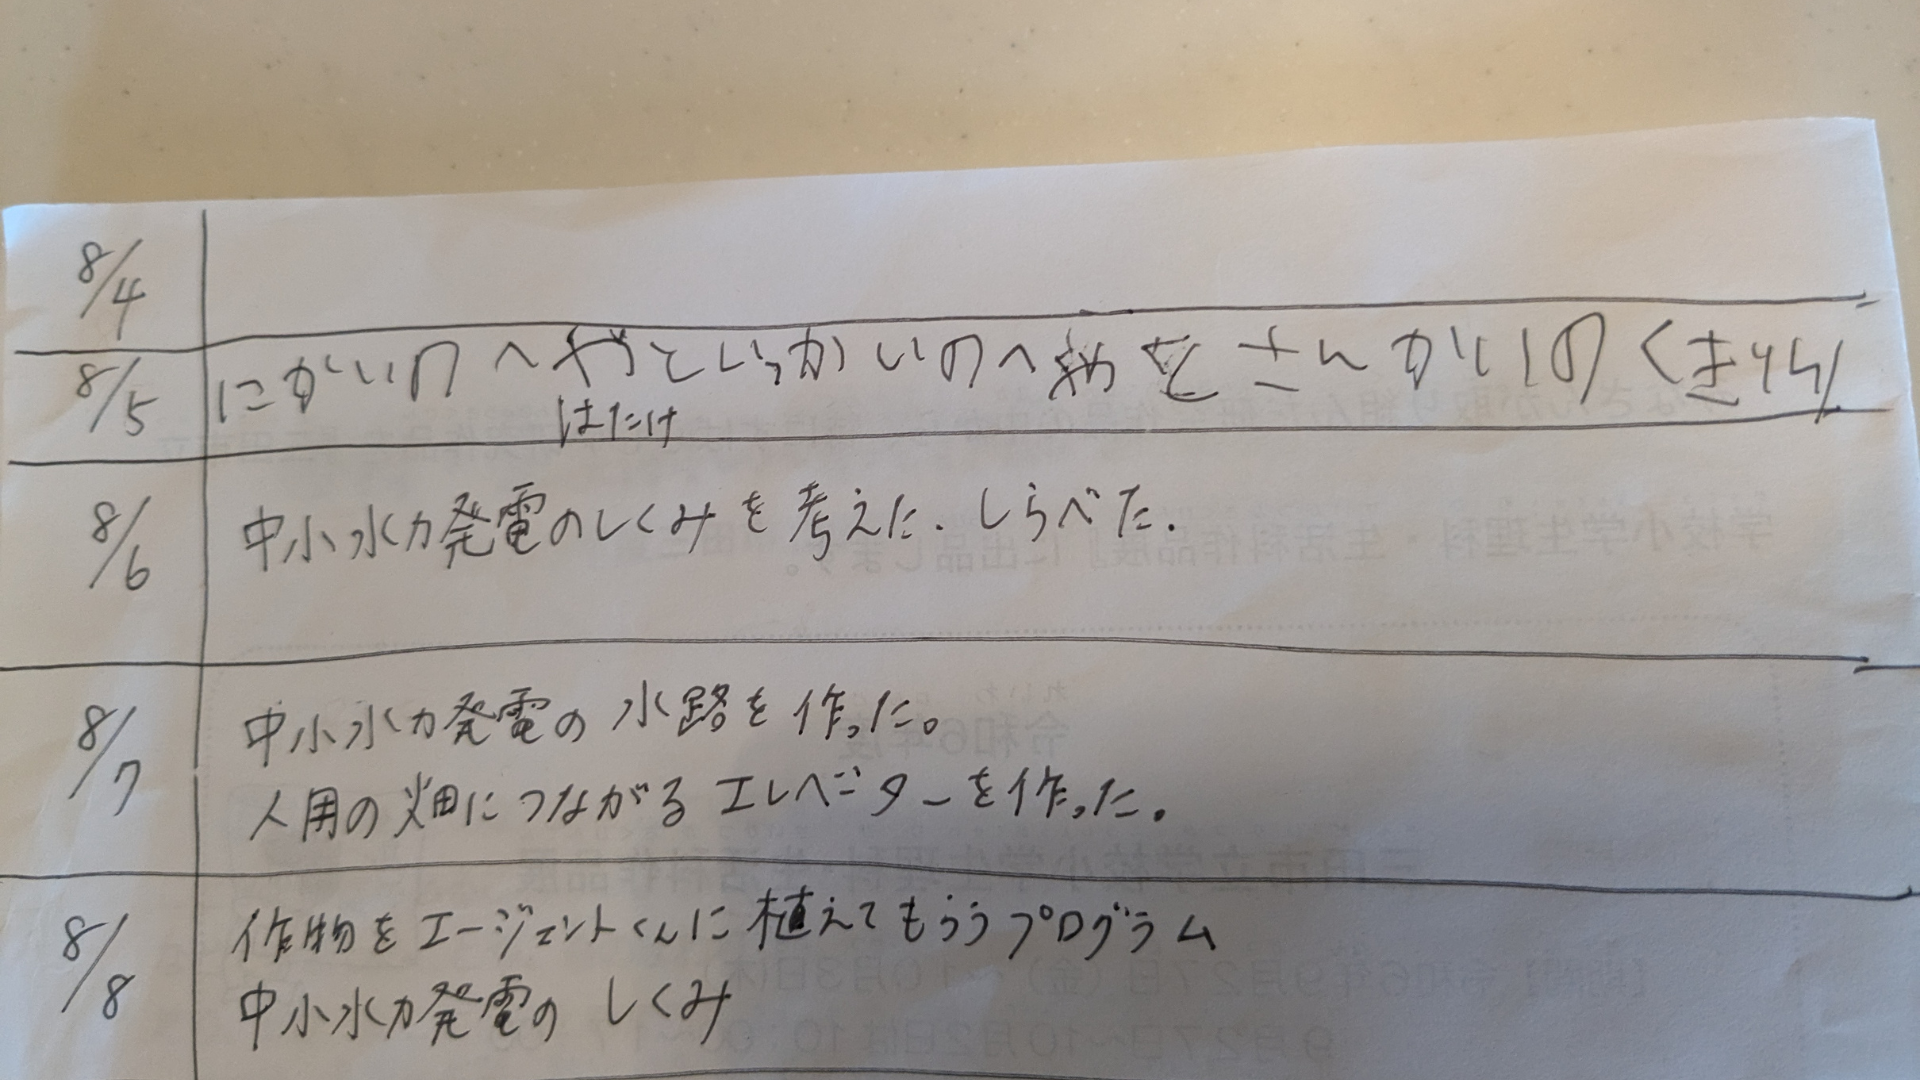 8/4
8/5 にかいのへやといっかいのへやをさんかいの
はたけ
8/6 中小水力発電のしくみを考えた.しらべた.
8/7 中小水力発電の水路を作った。
人用の畑につながるエレベーターを作った.
8/8 作物をエージェントくんに植えてもらうプログラム
中小水力発電のしくみ